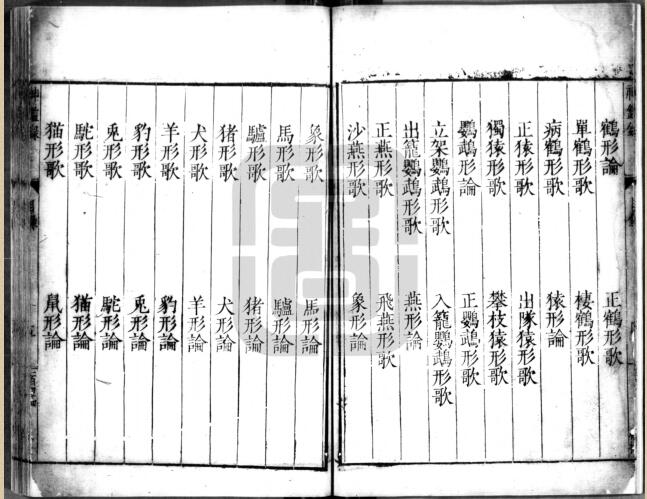 鶴形論　正鶴形歌
單鶴形歌　棲鶴形歌
病鶴形歌　猿形論
正猿形歌　出隊猿形歌
獨猿形歌　攀枝猿形歌
鸚鵡形論　正鸚鵡形歌
立架鸚鵡形歌　入籠鸚鵡形歌
出籠鸚鵡形歌　燕形論
正燕形歌　飛燕形歌
沙燕形歌　象形論
象形歌　馬形論
馬形歌　驢形論
驢形歌　猪形論
猪形歌　犬形論
犬形歌　羊形論
羊形歌　豹形論
豹形歌　兎形論
兎形歌　駝形論
駝形歌　猫形論
猫形歌　鼠形論